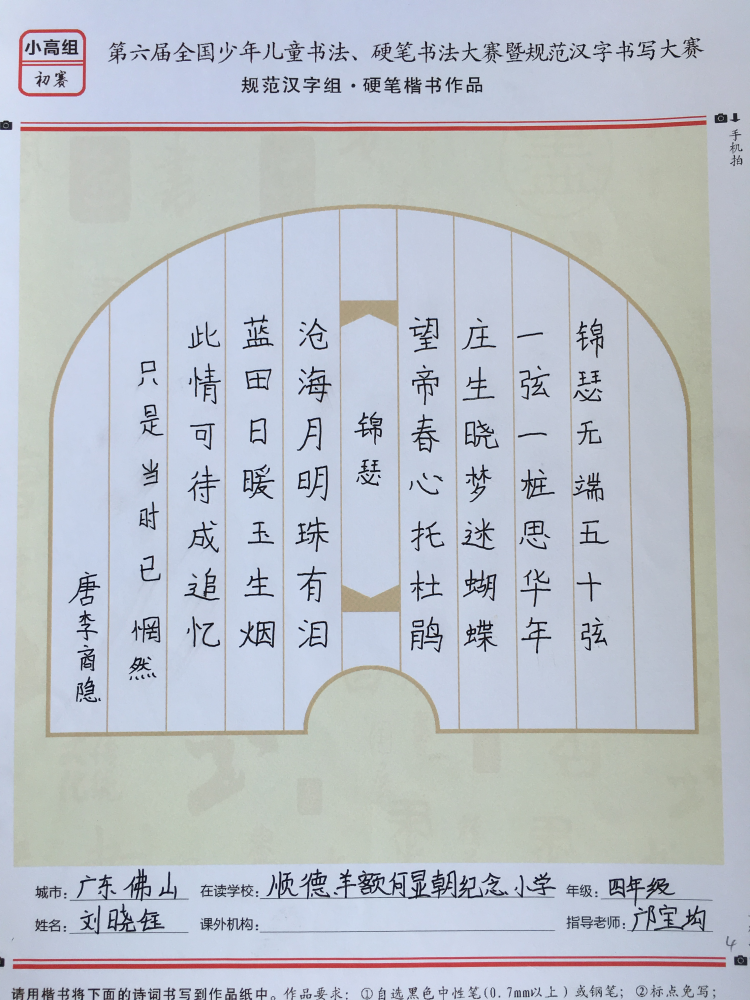 小高组
初赛
第六届全国少年儿童书法、硬笔书法大赛暨规范汉字书写大赛
规范汉字组·硬笔楷书作品
手机拍
锦瑟无端五十弦
一弦一桩思华年
庄生晓梦迷蝴蝶
望帝春心托杜鹃
锦瑟
沧海月明珠有泪
蓝田日暖玉生烟
此情可待成追忆
只是当时已惘然
唐李商隐
城市：广东佛山 在读学校：顺德羊额何显朝纪念小学 年级：四年级
姓名：刘晓钰 课外机构： 指导老师：邝宝均
4
请用楷书将下面的诗词书写到作品纸中。作品要求：①自选黑色中性笔(0.7mm以上)或钢笔；②标点免写；